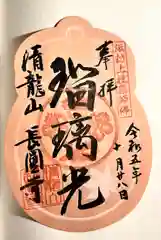 奉拝
令和五年
十月廿八日
瑠璃光
清龍山
長圓寺